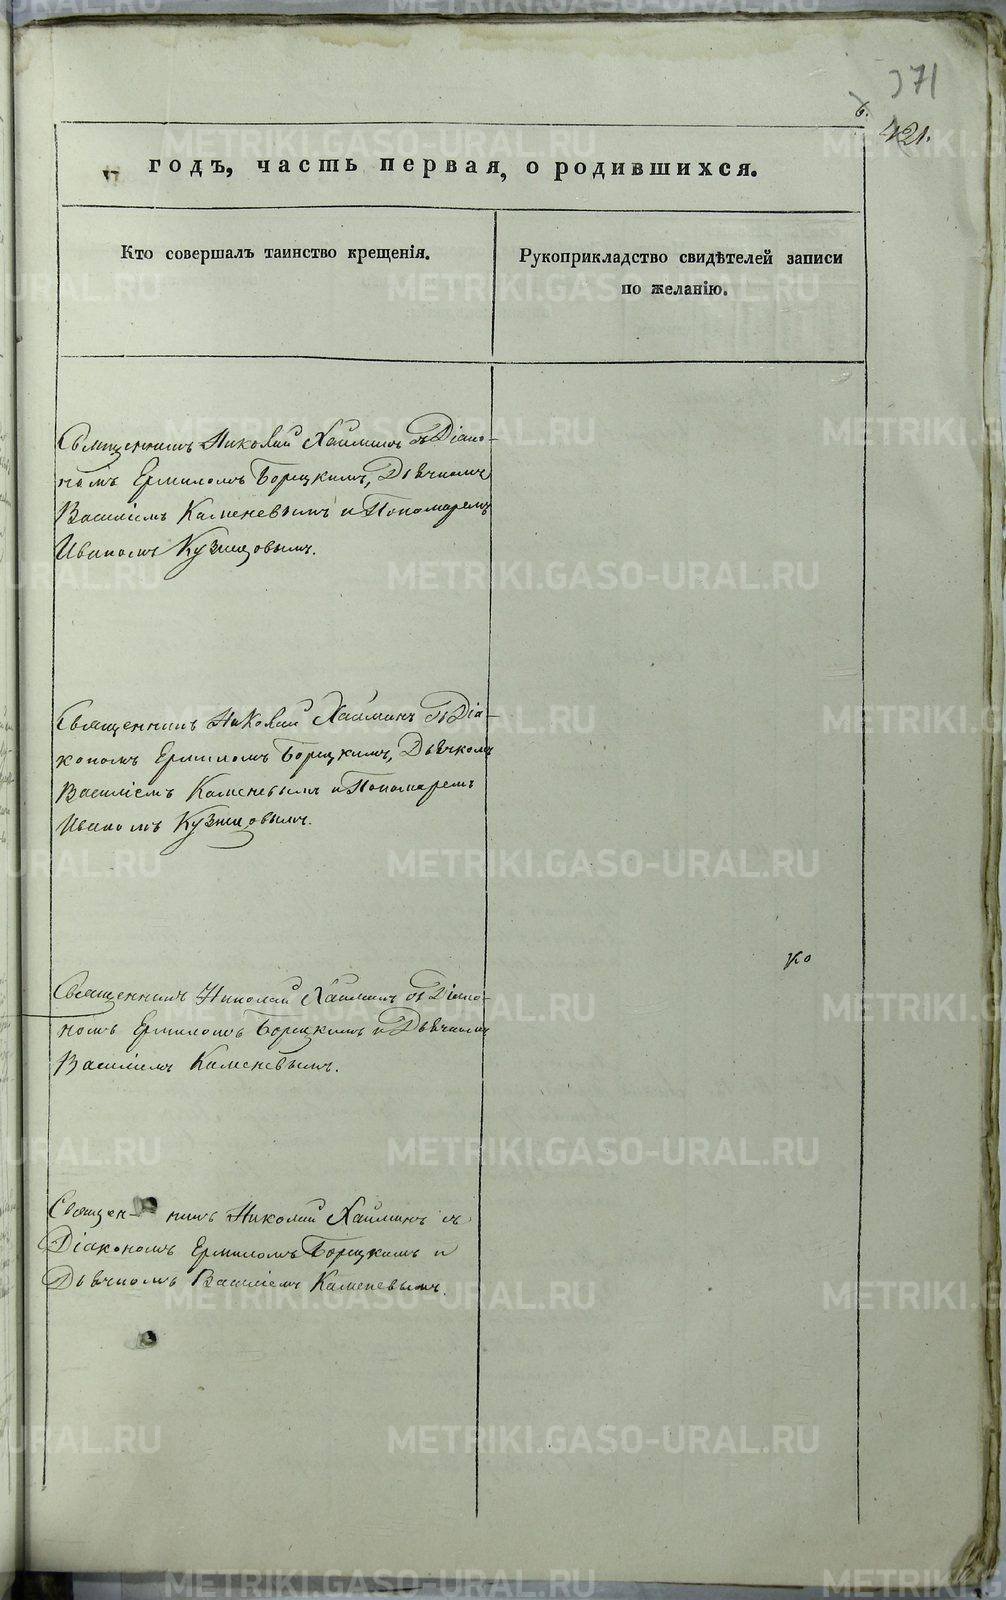 371
6.
421.
годъ, часть первая, о родившихся.
Кто совершалъ таинство крещенія.
Рукоприкладство свидѣтелей записи
по желанію.
Священникъ Николай Хаймикъ съ Діако-
номъ Ермиломъ Борецкимъ, Дьячкомъ
Василіемъ Каменевымъ и Пономаремъ
Иваномъ Кузнецовымъ.
Священникъ Николай Хаймикъ съ Діа-
кономъ Ермиломъ Борецкимъ, Дьячкомъ
Василіемъ Каменевымъ и Пономаремъ
Иваномъ Кузнецовымъ.
Ко
Священникъ Николай Хаймикъ съ Діако-
номъ Ермиломъ Борецкимъ и Дьячкомъ
Василіемъ Каменевымъ.
Священ- никъ Николай Хаймикъ съ
Діакономъ Ермиломъ Борецкимъ и
Дьячкомъ Василіемъ Каменевымъ.
METRIKI.GASO-URAL.RU